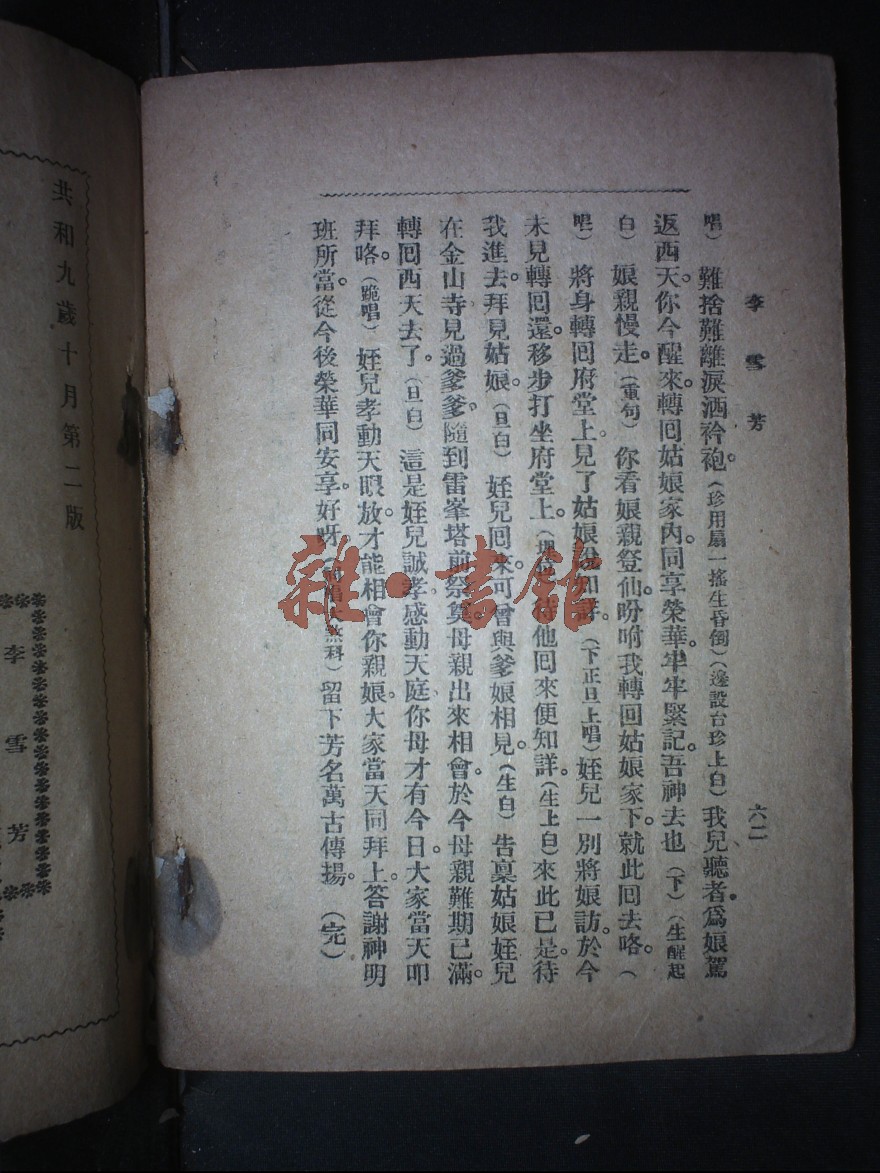 李雪芳
六二
唱）難捨難離淚洒衿袍。（珍用扇一搖生昏倒）（邊設台珍上白）我兒聽者。爲娘駕
返西天。你今醒來。轉囘姑娘家內。同享榮華。牢牢緊記。吾神去也（下）（生醒起
白）娘親慢走。（重句）你看娘親登仙。吩咐我轉回姑娘家下。就此囘去咯。（
唱）將身轉囘府堂上。見了姑娘說知詳。（下正旦上唱）姪兒一別將娘訪。於今
未見轉囘還。移步打坐府堂上。待他囘來便知詳。（生上白）來此已是。待
我進去拜見姑娘。（旦白）姪兒回來。可曾與爹娘相見。（生白）告稟姑娘。姪兒
在金山寺見過爹爹。隨到雷峯塔前祭奠。母親出來相會。於今母親難期已滿。
轉囘西天去了。（旦白）這是姪兒誠孝。感動天庭。你母才有今日。大家當天叩
拜咯。（跪唱）姪兒孝動天眼放。才能相會你親娘。大家當天同拜上。答謝神明
班所當。從今後榮華同安享。好呀（煞科）留下芳名萬古傳揚。（完）
共和九歲十月第二版
李雪芳
雜·書館